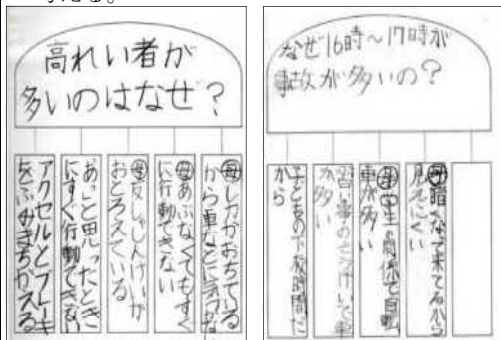 える。
高れい者が
多いのはなぜ？
母しカがおちている
から車などに気づ
母あぶなくてもすぐ
に行動できない
母反しゃしんけいが
おとろえている
あっと思ったとき
にすぐ行動できない
アクセルとブレーキ
をふみまちがえる
なぜ16時～17時が
事故が多いの？
母暗くなって来てるから
見えにくい
母学生関係で自動
車が多い
習い事のそうげいで車
が多い
子どもの下校時間だ
から